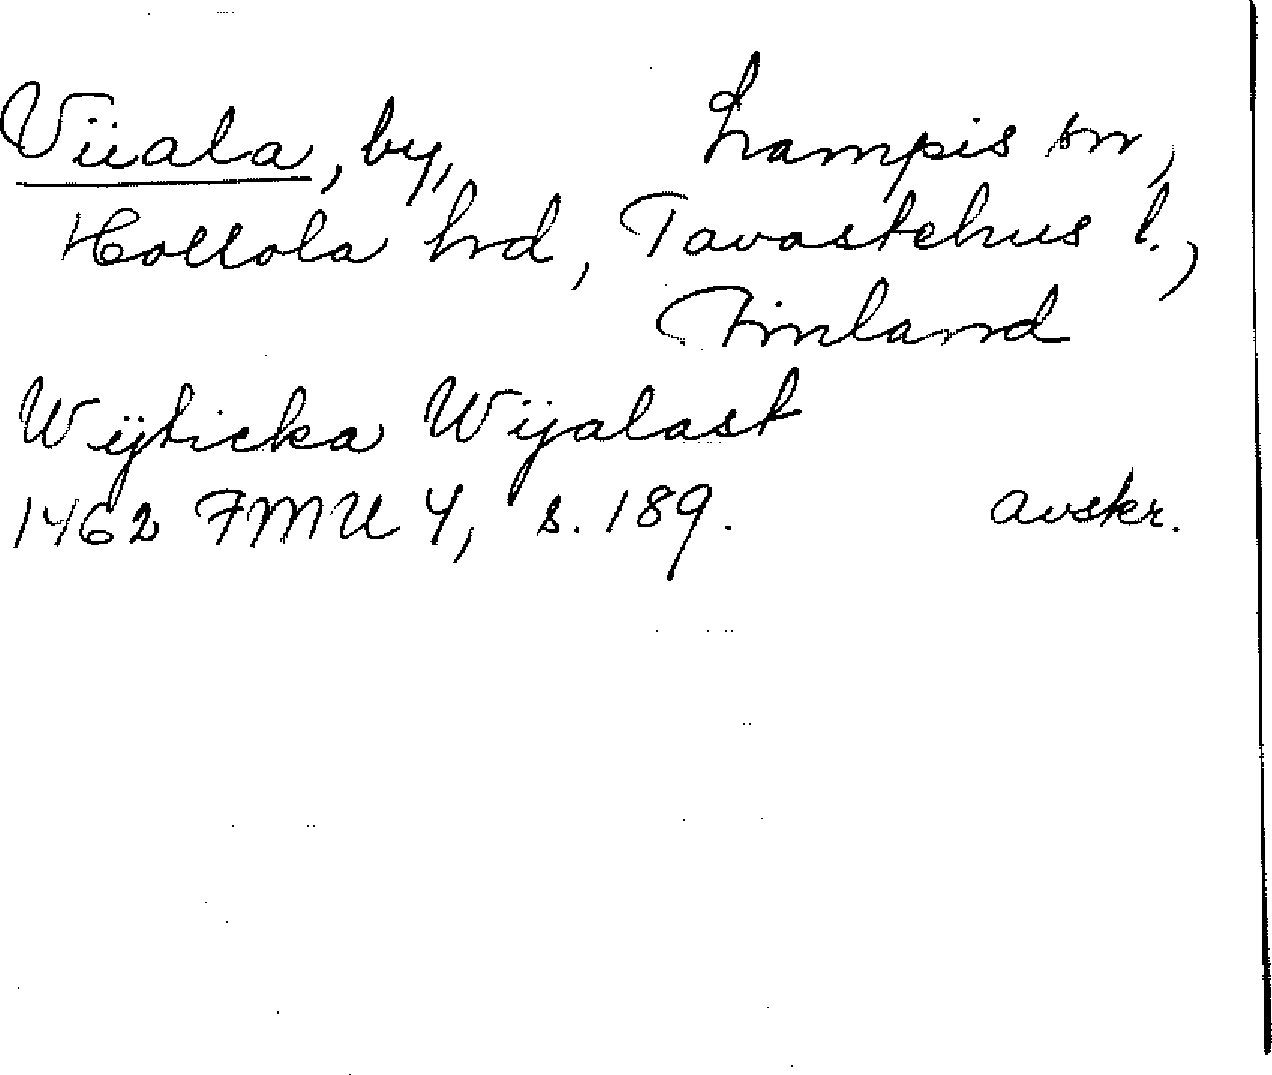 Viiala, by, Lampis sn,
Hollola hrd, Tavastehus l.,
Finland
Wijticka Wijalast
1462 FMU 4, s. 189. avskr.